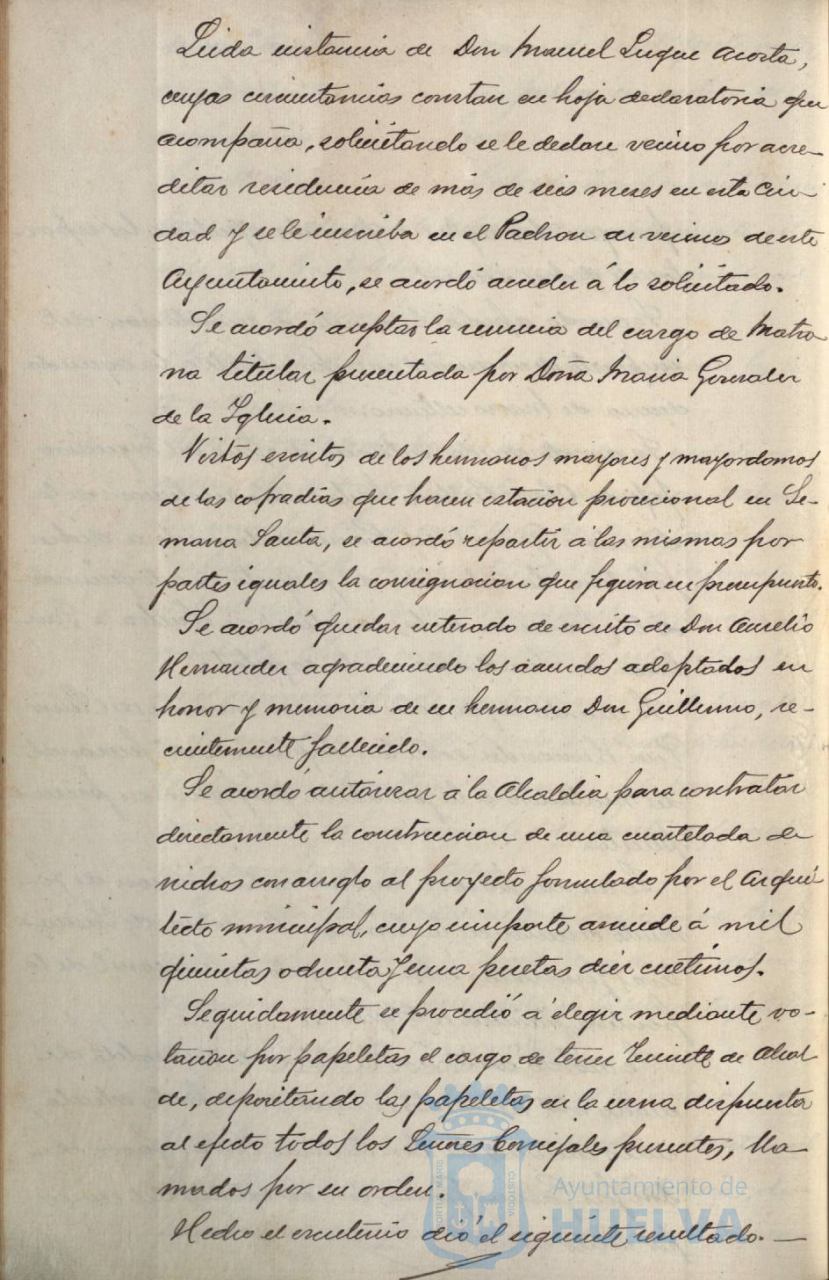 Leida instancia de Don Manuel Luque Acosta,
cuyas circuntancias constan en hoja declaratoria que
acompaña, solicitando se le declare vecino por acre-
ditar residencia de más de seis meses en esta Ciu-
dad y se le inscriba en el Padron de vecinos de este
Ayuntamiento, se acordó acceder á lo solicitado.
Se acordó aceptar la renuncia del cargo de Matro-
na titular presentada por Doña Maria Gonzalez
de la Iglesia.
Vistos escritos de los hermanos mayores y mayordomos
de las cofradias que hacen estacion procecional en Se-
mana Santa, se acordó repartir á las mismas por
partes iguales la consignacion que figura en presupuesto.
Se acordó quedar enterado de escrito de Don Aurelio
Hernandez agradeciendo los acuerdos adoptados en
honor y memoria de su hermano Don Guillermo, re-
cientemente fallecido.
Se acordó autorizar á la Alcaldia para contratar
directamente la construccion de una cuartelada de
nichos con arreglo al proyecto formulado por el Arqui-
tecto municipal, cuyo importe asciende á mil
quinientas ochenta y una pesetas diez centimos.
Seguidamente se procedió á elegir mediante vo-
tacion por papeletas el cargo de tercer Teniente de Alcal
de, depositando las papeletas en la urna dispuesta
al efecto todos los Señores Concejales presentes, lla-
mados por su orden.
Hecho el escrutinio dió el siguiente resultado. —
Ayuntamiento de
HUELVA